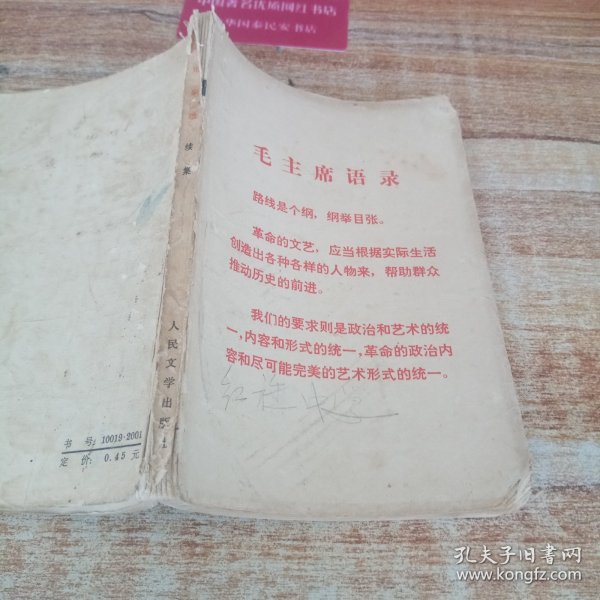 中国著名优质网红书店
华国泰民安书店
续集
人民文学出版社
毛主席语录
路线是个纲，纲举目张。
革命的文艺，应当根据实际生活
创造出各种各样的人物来，帮助群众
推动历史的前进。
我们的要求则是政治和艺术的统
一，内容和形式的统一，革命的政治内
容和尽可能完美的艺术形式的统一。
红旗
书号：10019·2001
定价：0.45元
孔夫子旧书网
www.kongfz.com